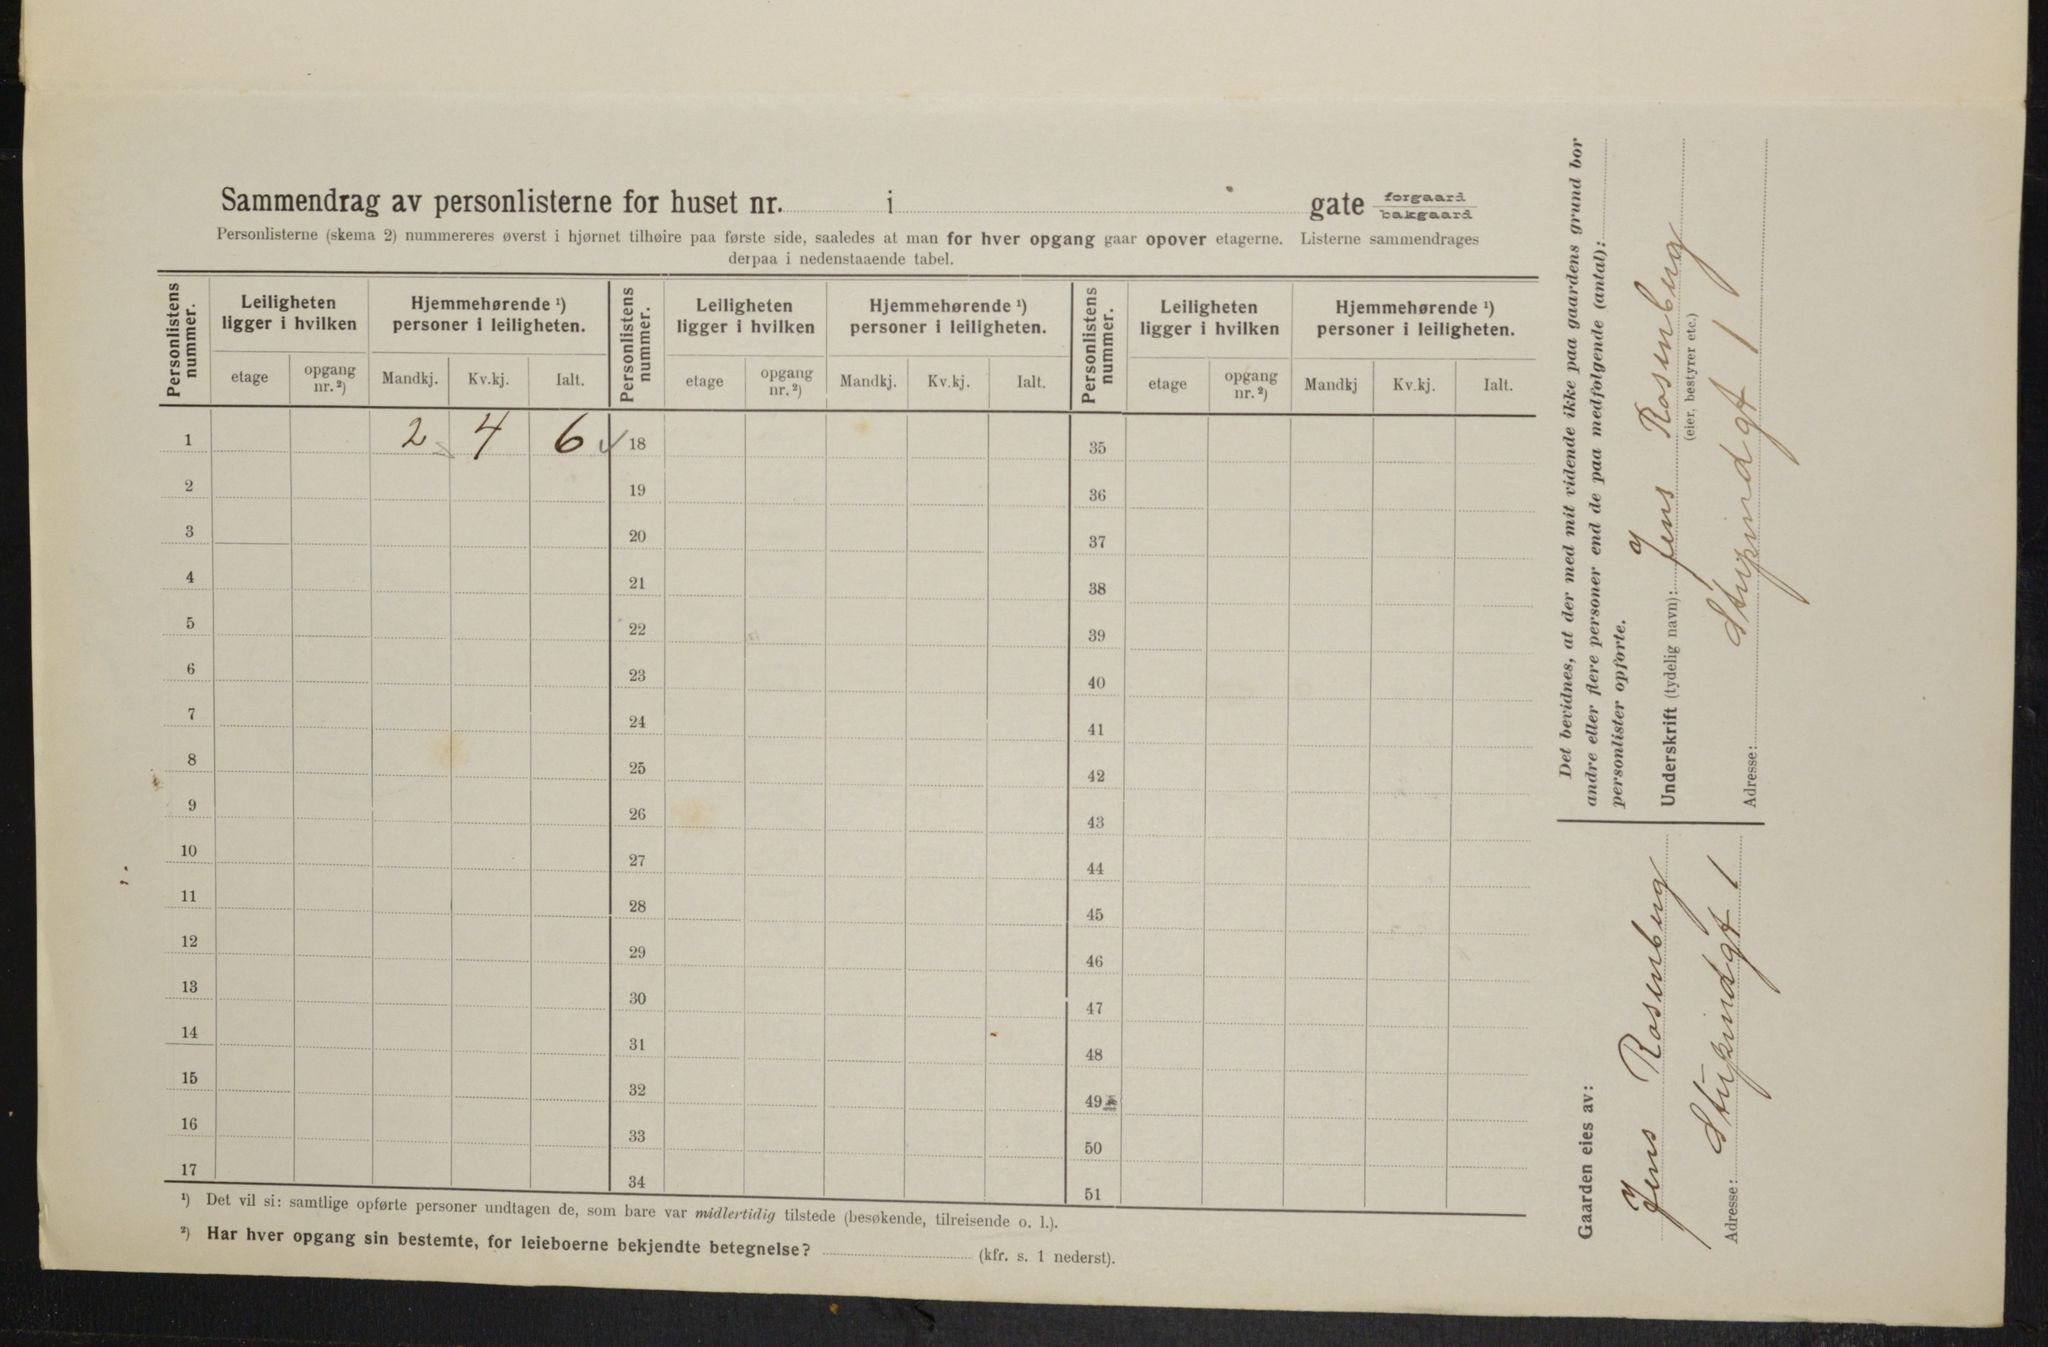 Sammendrag av personlisterne for huset nr. i gate forgaard bakgaard
Personlisterne (skema 2) nummereres øverst i hjørnet tilhøire paa første side, saaledes at man for hver opgang gaar opover etagerne. Listerne sammendrages
derpaa i nedenstaaende tabel.
Personlistens nummer. Leiligheten ligger i hvilken Hjemmehørende ¹) personer i leiligheten. Personlistens nummer. Leiligheten ligger i hvilken Hjemmehørende ¹) personer i leiligheten. Personlistens nummer. Leiligheten ligger i hvilken Hjemmehørende ¹) personer i leiligheten.
etage opgang nr. ²) Mandkj. Kv.kj. Ialt. etage opgang nr. ²) Mandkj. Kv.kj. Ialt. etage opgang nr. ²) Mandkj Kv.kj. Ialt.
1 2 4 6 18 35
2 19 36
3 20 37
4 21 38
5 22 39
6 23 40
7 24 41
8 25 42
9 26 43
10 27 44
11 28 45
12 29 46
13 30 47
14 31 48
15 32 49
16 33 50
17 34 51
¹) Det vil si: samtlige opførte personer undtagen de, som bare var midlertidig tilstede (besøkende, tilreisende o. l.).
²) Har hver opgang sin bestemte, for leieboerne bekjendte betegnelse? (kfr. s. 1 nederst).
Gaarden eies av:
Jens Rosenberg
Adresse: Stupindgt 1
Det bevidnes, at der med mit vidende ikke paa gaardens grund bor
andre eller flere personer end de paa medfølgende (antal):
personlister opførte.
Underskrift (tydelig navn): Jens Rosenberg
(eier, bestyrer etc.)
Adresse: Stupindgt 1